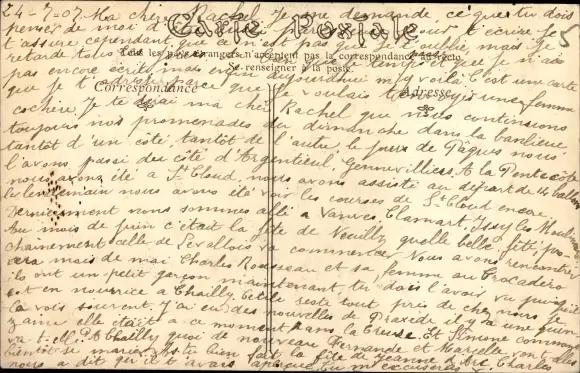 24-7-07. Ma chère Rachel, Je me demande, ce que tu dois
penser de moi d
Carte Postale
t'assure cependant que ce n'est pas que je t'oublie, mais je
retarde tous les
Tous les pays étrangers n'acceptent pas la correspondance au recto.
Se renseigner à la poste.
pas encore écrit, mais enfin aujourdhui m'y voilà c'est une carte
que je t'adresse
que je voulais t'envoyer une femme
Correspondance
Adresse
cochère, Je te dirai ma chère Rachel que nous continuons
toujours nos promenades du dimanche dans la banlieue
tantôt d'un côté tantôt de l'autre, le jour de Pâques nous
l'avons passé du côté d'Argenteuil, Gennevilliers, A la Pentecôte
nous avons été à St Cloud, nous avons assisté au départ de 14 ballons
le lendemain nous avons été voir les courses de St Cloud encore
Dernièrement nous sommes allé a Vanves, Clamart, Issy les Moulineaux
Au mois de juin c'était la fête de Neuilly quelle belle fête pro-
chainement celle de Levallois va commencer, Nous avons rencontré
au mois de mai Charles Rousseau et sa femme au Trocadéro
ils ont un petit garçon maintenant, tu dois l'avoir vu puisqu'il
est en nourrice a Chailly, Cécile reste tout près de chez nous je
la vois souvent, j'ai eu des nouvelles de Praxède il y a une quin-
zaine elle était a ce moment dans la Creuse. Et Simone comment
va-t-elle, A Chailly quoi de nouveau Fernande et Marcelle vont elles
bientôt se marier, As tu bien fait la fête de Jeanne d'Arc, Charles
nous a dit qu'il t'avait aperçue, tu m'excuseras
5